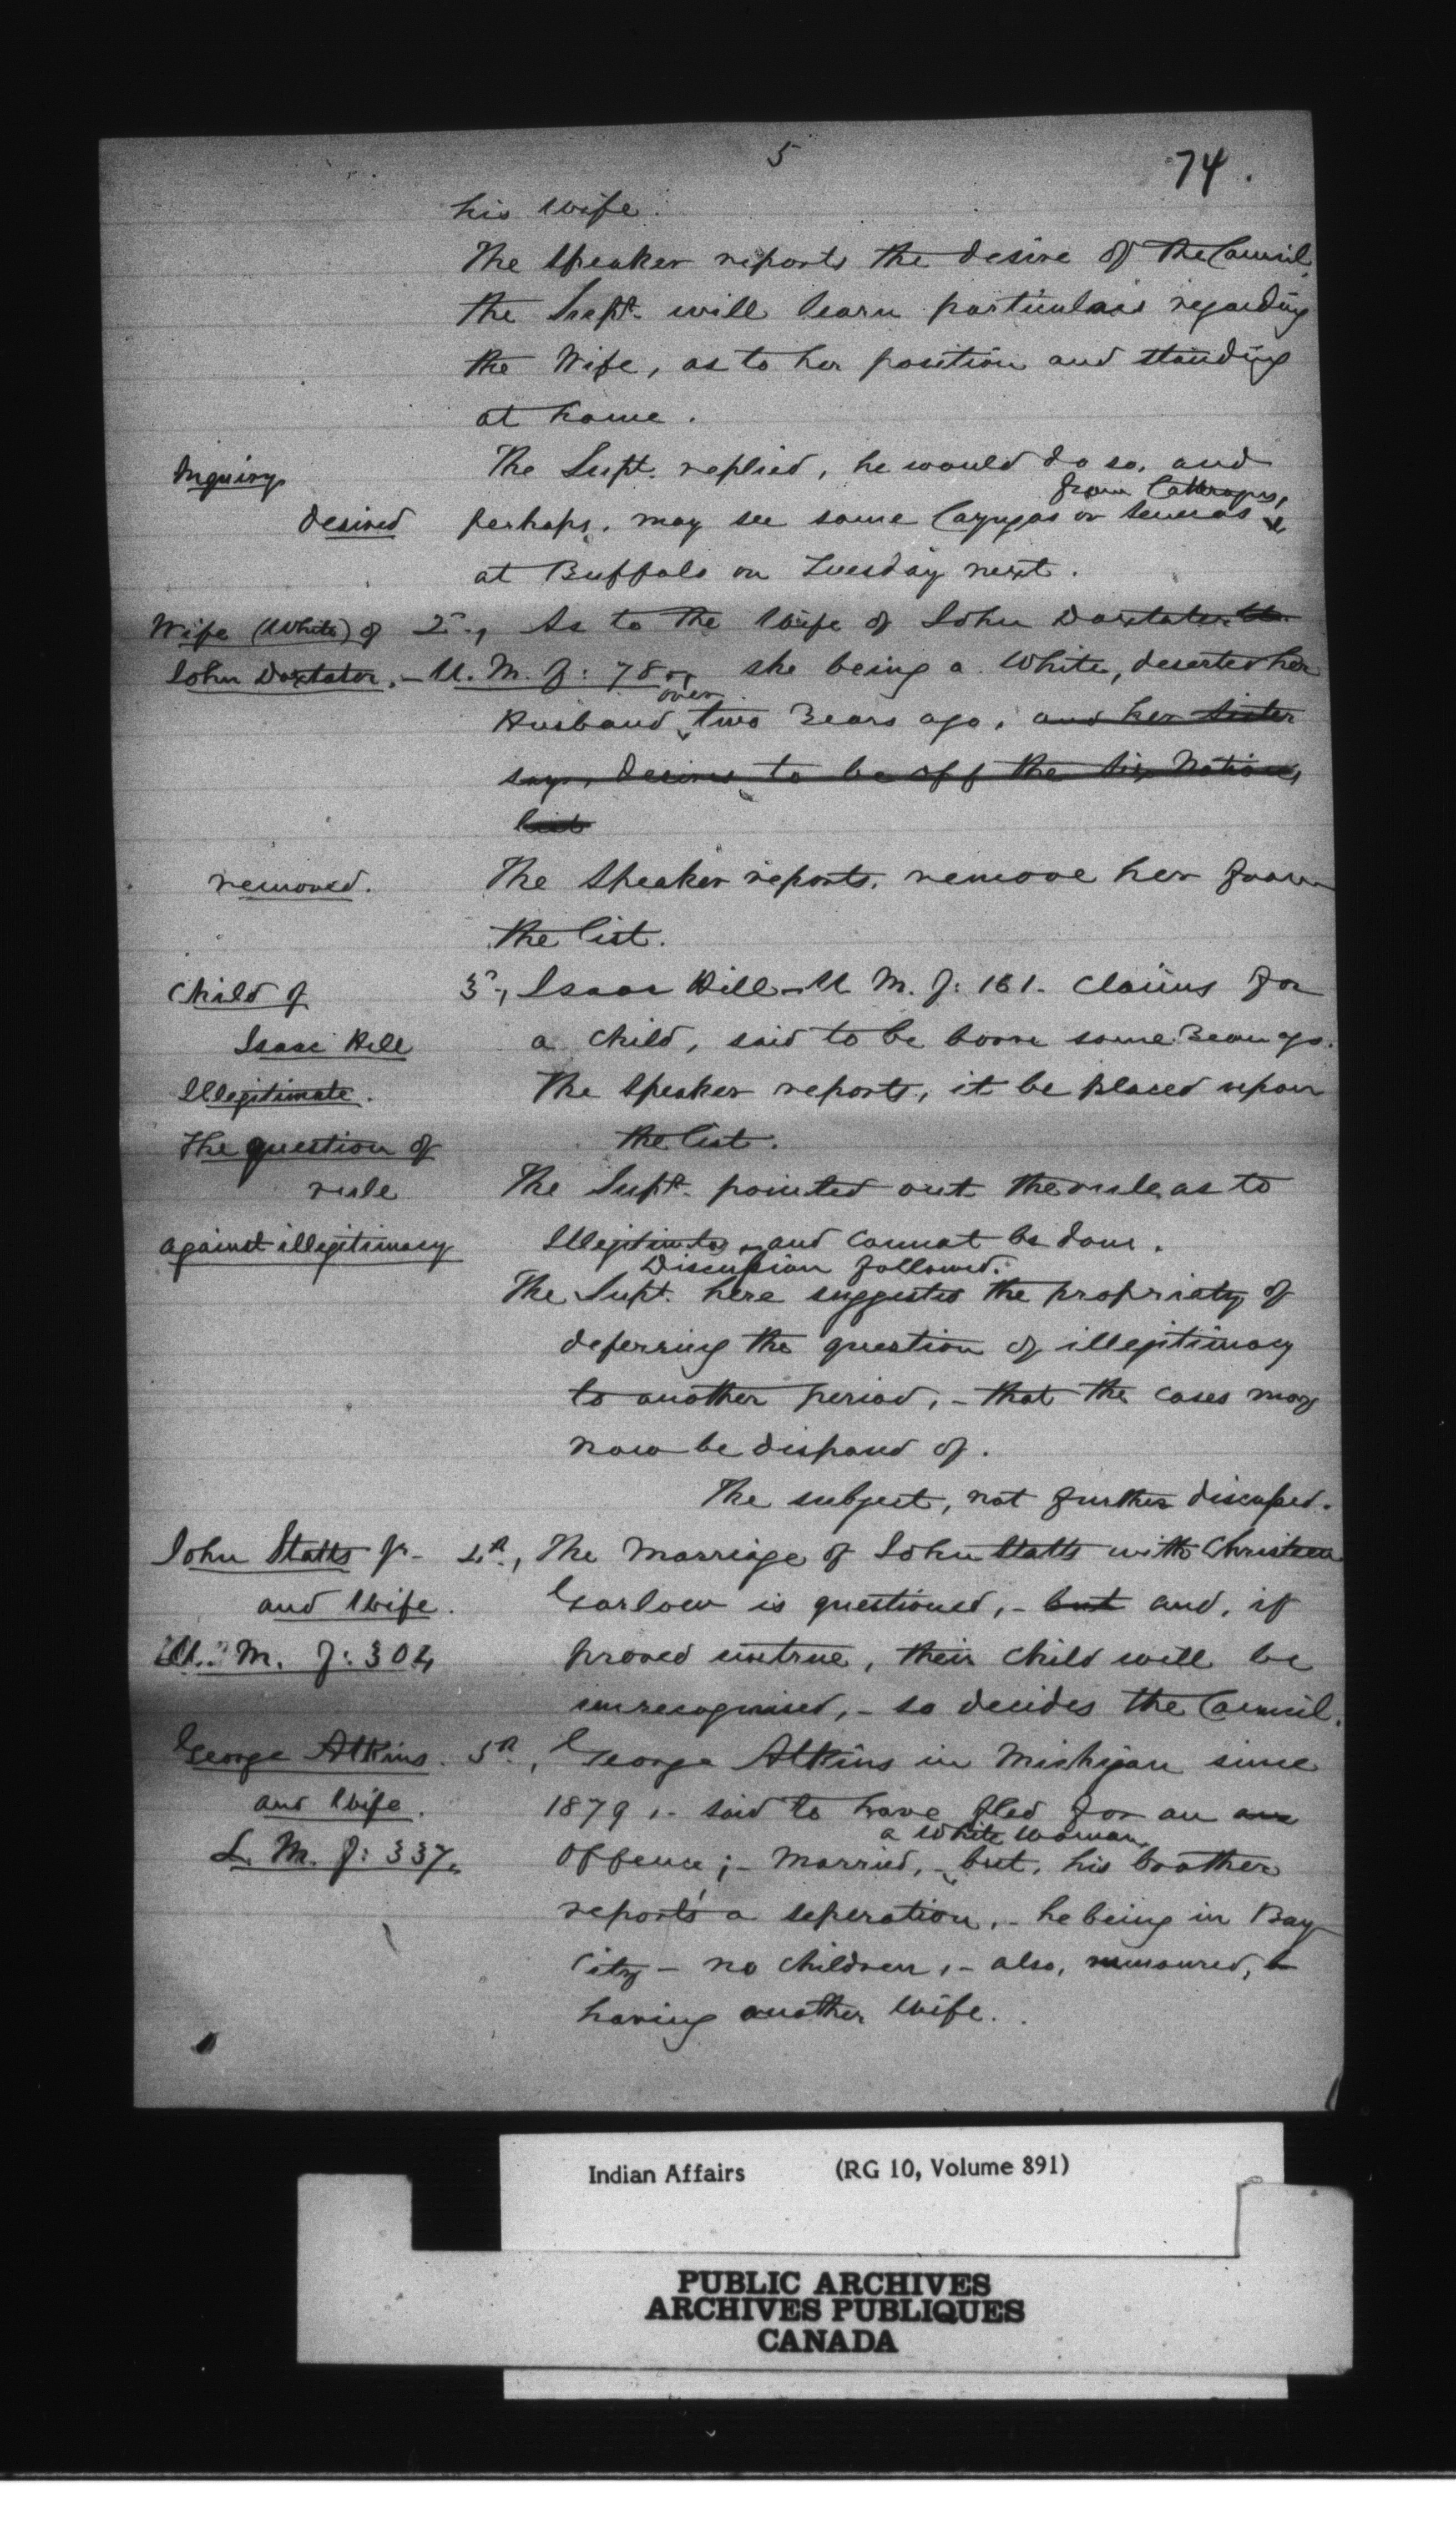 5
74.
his Wife.
The Speaker reports the desire of the Council,
the Supt. will learn particulars regarding
the Wife, as to her position and standing
at home.
Inquiry
The Supt. replied, he would do so, and
from Cattaraugus,
desired
perhaps, may see some Cayugas or Senecas
at Buffalo on Tuesday next.
Wife (White) of
2nd, As to the Wife of John Doxtater
John Doxtator,
- U. M. f: 78, she being a White, deserted her
over
Husband two Years ago, and her sister
says, desires to be off the Six Nations
list
removed.
The Speaker reports, remove her from
the list.
Child of
3rd, Isaac Hill - U. M. f: 161 - Claims for
Isaac Hill
a Child, said to be born some Years ago.
Illegitimate.
The Speaker reports, it be placed upon
The question of
the list.
rule
The Supt. pointed out the rule, as to
against illegitimacy
and cannot be done.
Discussion followed.
The Supt. here suggested the propriety of
deferring the question of illegitimacy
to another period, - that the cases may
now be disposed of.
The subject, not further discussed.
John Statts Jr.
4th, The Marriage of John Statts with Christeen
and Wife.
Garlow is questioned, - but and, if
U. M. f: 304
proved untrue, their Child will be
unrecognised, - so decides the Council.
George Atkins.
5th, George Atkins in Michigan since
and Wife.
1879, - said to have fled for an
a White Woman,
L. M. f: 337.
Offence; - Married, - but, his brother
reports a seperation, - he being in Bay
City - no Children, - also, rumoured,
having another Wife.
Indian Affairs (RG 10, Volume 891)
PUBLIC ARCHIVES
ARCHIVES PUBLIQUES
CANADA